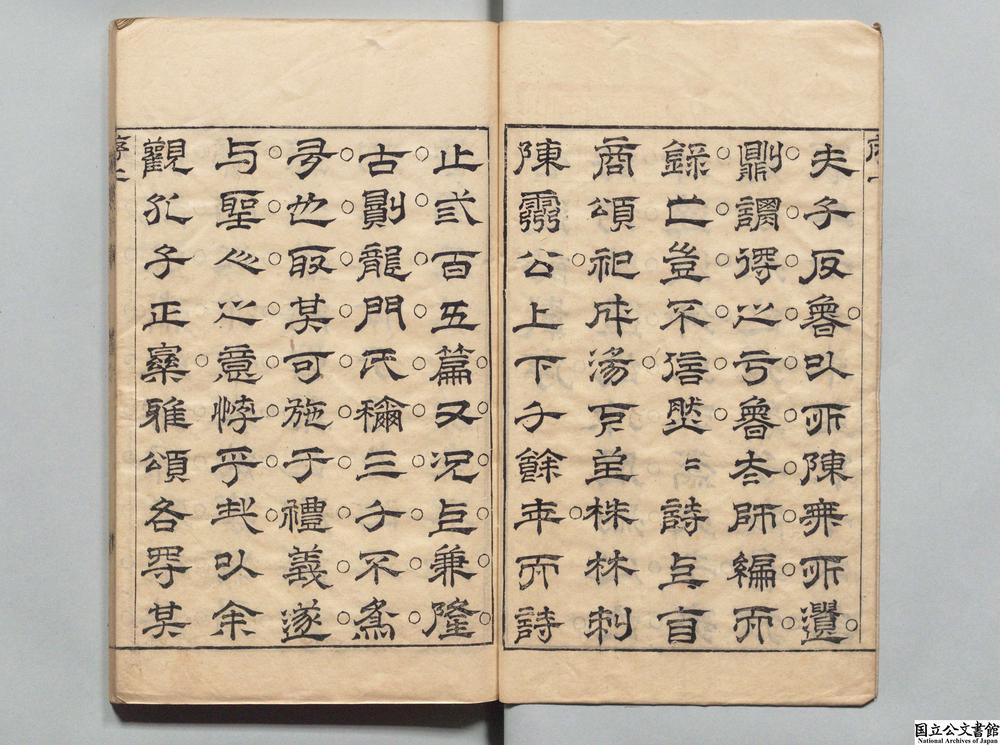 夫子反魯以所陳無所遺
則謂得之于魯太師編而
錄之豈不信然〻詩亘自
商頌祀成湯下至株林刺
陳靈公上下千餘年而詩
止弎百五篇又況亘兼隆
古則龍門氏稱三千不為
夸也取其可施于禮義遂
与聖心之意悖乎哉以余
觀孔子正樂雅頌各得其
国立公文書館
National Archives of Japan